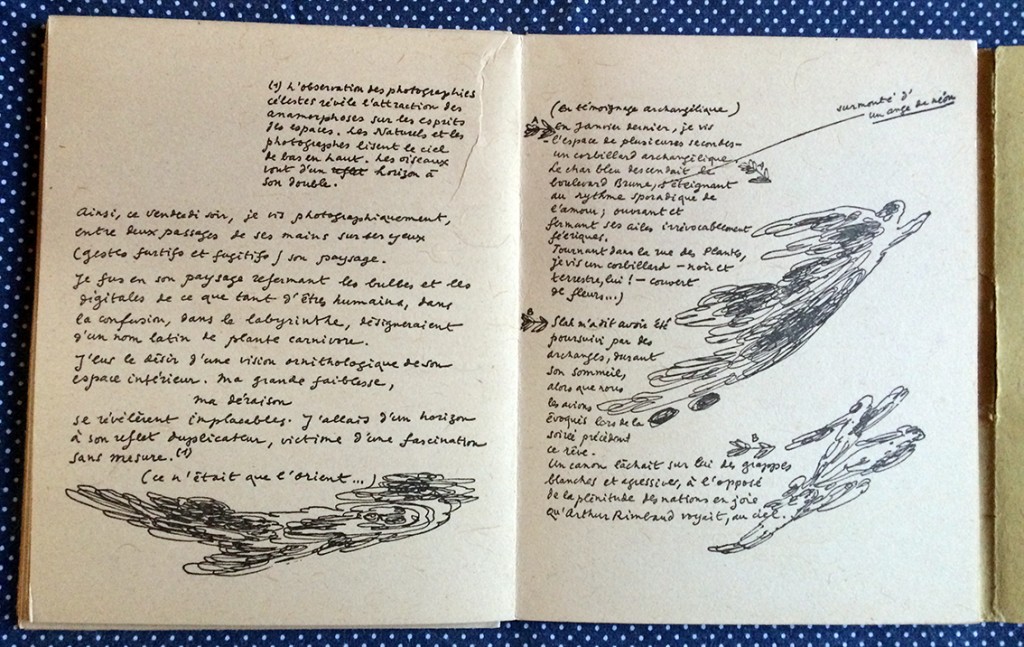 (1) L'observation des photographies
célestes révèle l'attraction des
anamorphoses sur les esprits
des espaces. Les Naturels et les
photographes lisent le ciel
de bas en haut. Les oiseaux
vont d'un reflet horizon à
son double.
Ainsi, ce vendredi soir, je vis photographiquement,
entre deux passages de ses mains sur ses yeux
(gestes furtifs et fugitifs) son paysage.
Je fus en son paysage refermant les bulbes et les
digitales de ce que tant d'êtres humains, dans
la confusion, dans le labyrinthe, désigneraient
d'un nom latin de plante carnivore.
J'eus le désir d'une vision ornithologique de son
espace intérieur. Ma grande faiblesse,
ma déraison
se révélèrent implacables. J'allais d'un horizon
à son reflet duplicateur, victime d'une fascination
sans mesure. (1)
(Ce n'était que l'Orient...)
(En témoignage archangélique)
En Janvier dernier, je vis
- l'espace de plusieures secondes -
un corbillard archangélique
Le char bleu descendait le
boulevard Brune, s'éteignant
au rythme sporadique de
l'amour ; ouvrant et
fermant ses ailes irrévocablement
féériques.
Tournant dans la rue des Plantes,
je vis un corbillard - noir et
terrestre, lui ! - couvert
de fleurs...)
surmonté d'
un ange de néon
A
B
Slah m'a dit avoir été
poursuivi par des
archanges, durant
son sommeil,
alors que nous
les avions
évoqués lors de la
soirée précédent
ce rêve.
Un canon lâchait sur lui des grappes
blanches et agressives, à l'opposé
de la plénitude des nations en joie
qu'Arthur Rimbaud voyait, au ciel.
B